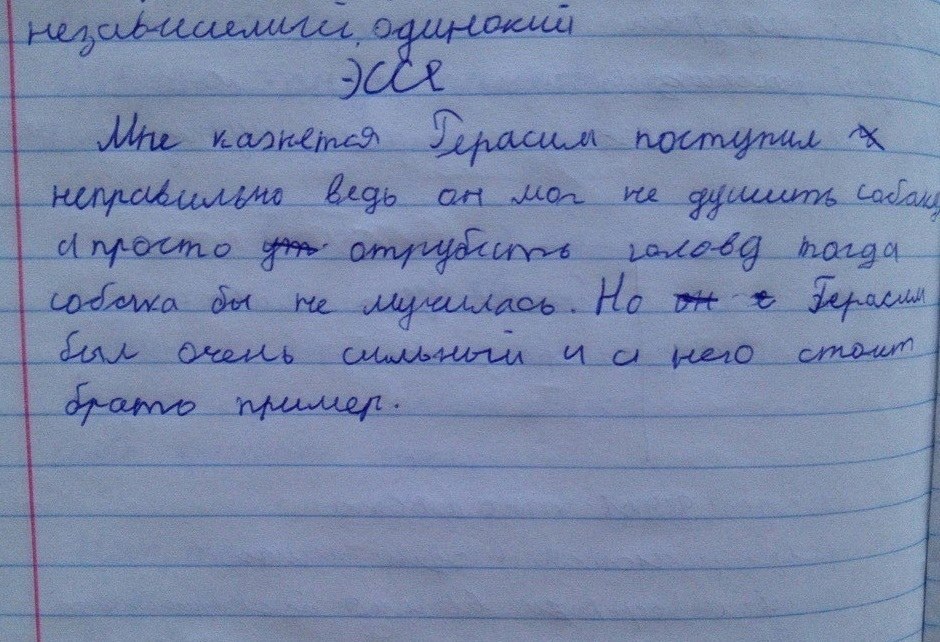 независимый, одинокий
ЭССЕ
Мне кажется Герасим поступил
неправильно ведь он мог не душить собаку
а просто отрубить голову тогда
собачка бы не мучилась. Но Герасим
был очень сильный и с него стоит
брать пример.